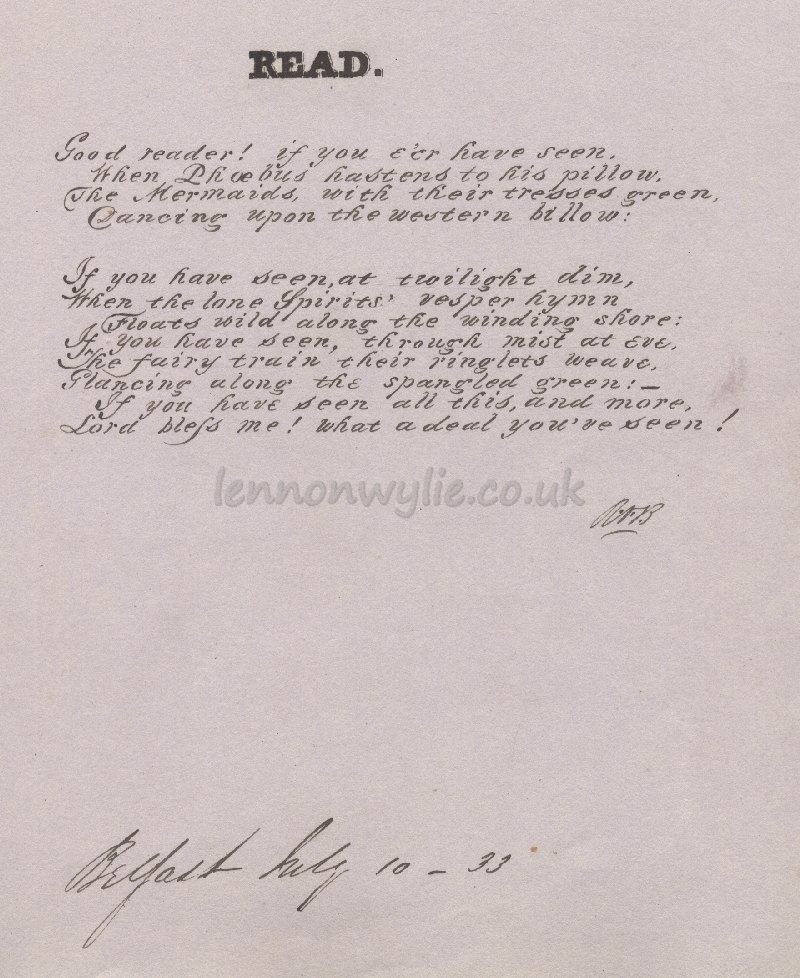 READ.
Good reader! if you e'er have seen,
When Phœbus hastens to his pillow,
The Mermaids, with their tresses green,
Dancing upon the western billow:
If you have seen, at twilight dim,
When the lone Spirits' vesper hymn
Floats wild along the winding shore:
If you have seen, through mist at eve,
The fairy train their ringlets weave,
Glancing along the spangled green:—
If you have seen all this, and more,
Lord bleſs me! what a deal you've seen!
lennonwylie.co.uk
Belfast July 10 – 33